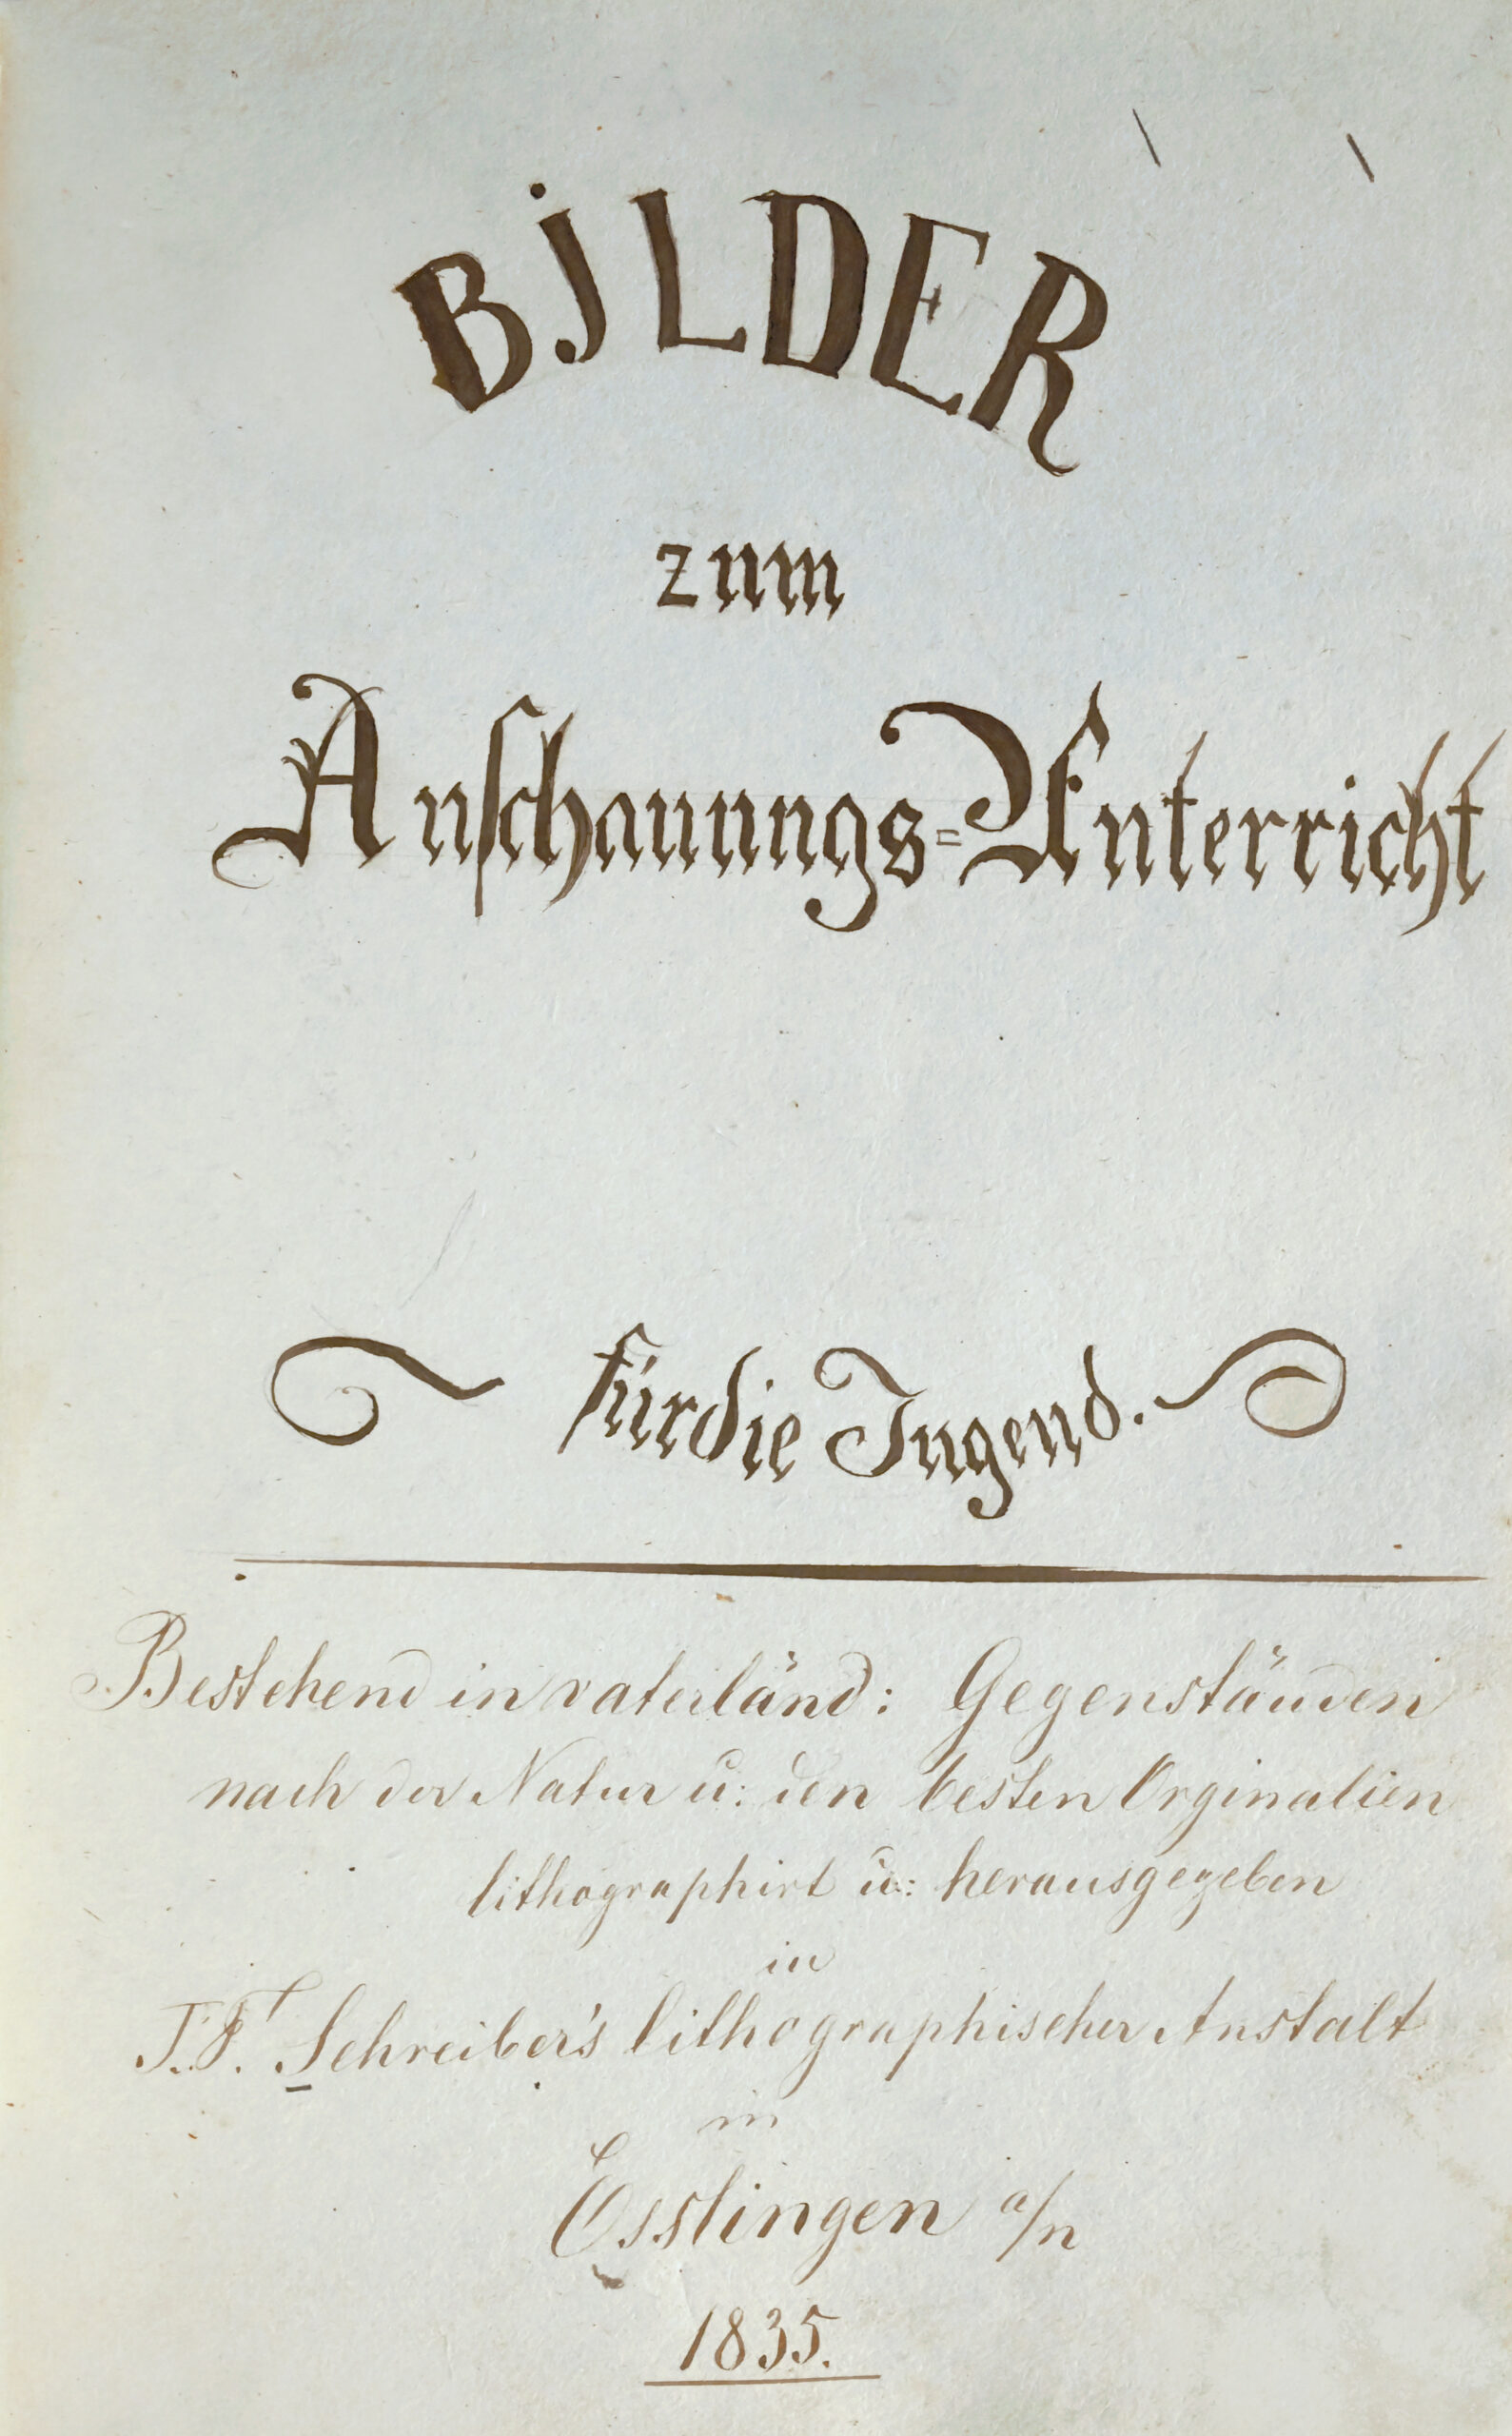 BJLDER
zum
Anſchauungs=Unterricht
für die Jugend.
Bestehend in vaterländ: Gegenständen
nach der Natur u: den besten Orginalien
lithographirt u: herausgegeben
in
J. F. Schreiber's lithographischer Anstalt
in
Esslingen a/n
1835.